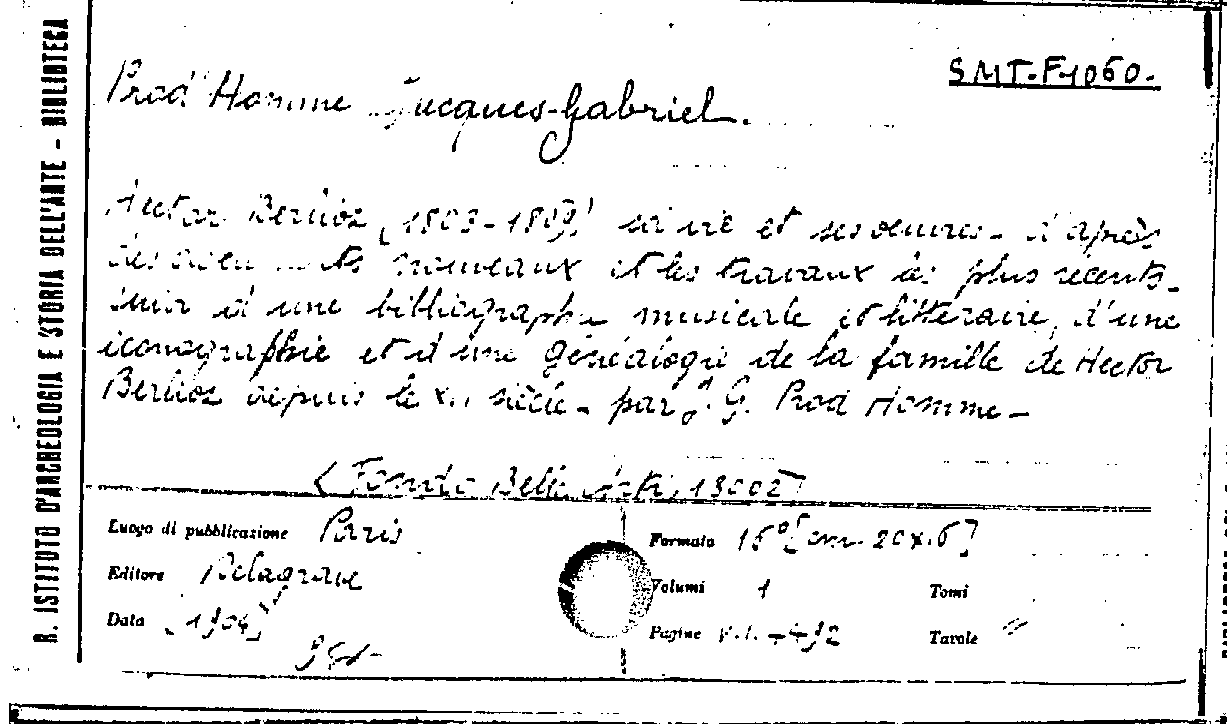 R. ISTITUTO D'ARCHEOLOGIA E STORIA DELL'ARTE - BIBLIOTECA
SMT.F1060.
Prod'Homme Jacques-Gabriel.
Hector Berlioz (1803-1869) sa vie et ses oeuvres - d'après
des documents nouveaux et les travaux les plus récents -
suivi d'une bibliographie musicale et littéraire, d'une
iconographie et d'une généalogie de la famille de Hector
Berlioz depuis le siècle - par J. G. Prod'Homme -
(Fondo Belle Arti, 13002)
Luogo di pubblicazione Paris
Formato 16° [cm. 20x.6]
Editore Delagrave
Volumi 1 Tomi
Data [1904]
Pagine Tavole